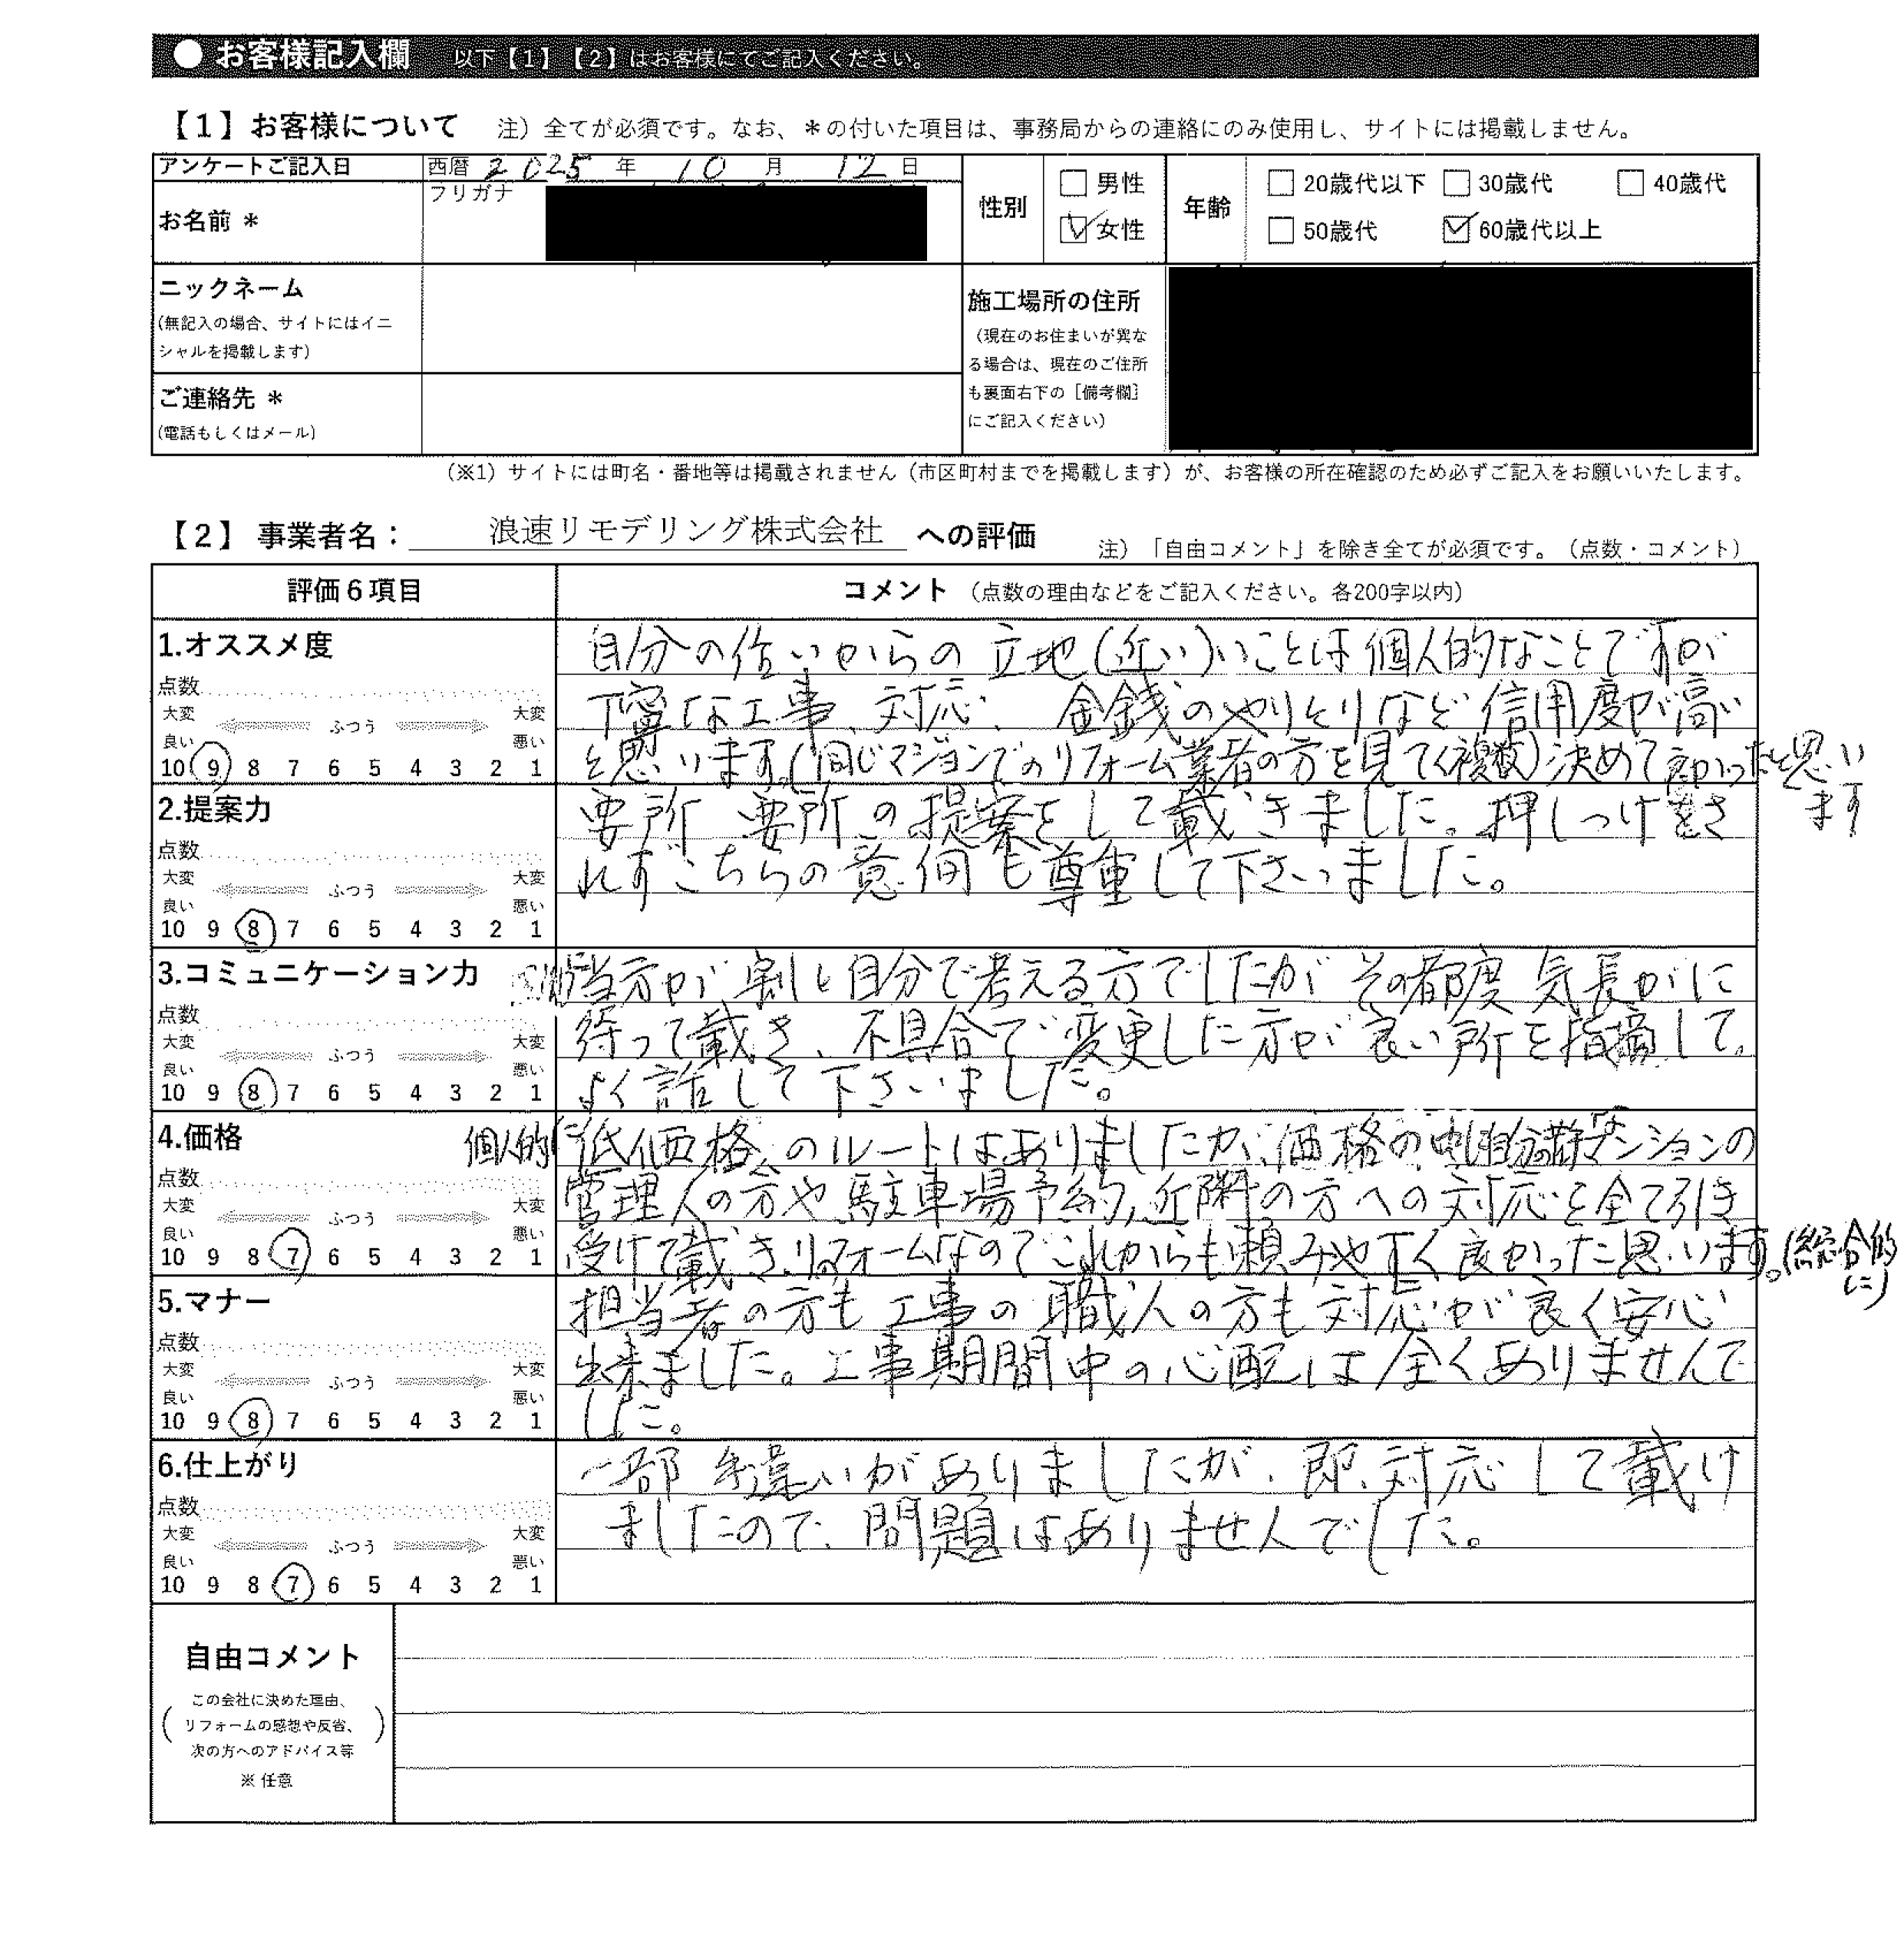 ● お客様記入欄 以下【1】【2】はお客様にてご記入ください。
【1】お客様について 注）全てが必須です。なお、＊の付いた項目は、事務局からの連絡にのみ使用し、サイトには掲載しません。
アンケートご記入日 西暦 2025 年 10 月 12 日
お名前 ＊ フリガナ
性別 □ 男性 ☑ 女性
年齢 □ 20歳代以下 □ 30歳代 □ 40歳代
□ 50歳代 ☑ 60歳代以上
ニックネーム
（無記入の場合、サイトにはイニ
シャルを掲載します）
ご連絡先 ＊
（電話もしくはメール）
施工場所の住所
（現在のお住まいが異な
る場合は、現在のご住所
も裏面右下の［備考欄］
にご記入ください）
（※1）サイトには町名・番地等は掲載されません（市区町村までを掲載します）が、お客様の所在確認のため必ずご記入をお願いいたします。
【2】 事業者名： 浪速リモデリング株式会社 への評価 注）「自由コメント」を除き全てが必須です。（点数・コメント）
評価６項目 コメント （点数の理由などをご記入ください。各200字以内）
1.オススメ度
点数
大変 ふつう 大変
良い 悪い
10 9 8 7 6 5 4 3 2 1
自分の住いからの 立地（近い）いことは個人的なことですが
丁寧な工事、対応、 金銭のやりとりなど 信用度が高い
と思います。（同じマンションでのリフォーム業者の方を見て（複数）決めて良かったと思い
ます
2.提案力
点数
大変 ふつう 大変
良い 悪い
10 9 8 7 6 5 4 3 2 1
要所 要所の提案をして戴きました。押しつけをさ
れずこちらの意向も尊重して下さいました。
3.コミュニケーション力
点数
大変 ふつう 大変
良い 悪い
10 9 8 7 6 5 4 3 2 1
当方が 割と自分で考える方でしたが その都度 気長がに
待って戴き、不具合で変更した方が良い所を指摘して
よく話して下さいました。
4.価格
点数
大変 ふつう 大変
良い 悪い
10 9 8 7 6 5 4 3 2 1
個人的に低価格のルートはありましたが、価格の マンションの
管理人の方や駐車場予約、近隣の方への対応を全て引き
受けて戴き、リフォームなのでこれからも頼みやすく良かった思います。（総合的
に）
5.マナー
点数
大変 ふつう 大変
良い 悪い
10 9 8 7 6 5 4 3 2 1
担当者の方も工事の職人の方も対応が良く安心
出来ました。工事期間中の心配は全くありませんで
した。
6.仕上がり
点数
大変 ふつう 大変
良い 悪い
10 9 8 7 6 5 4 3 2 1
一部 手違いがありましたが、即、対応して戴け
ましたので、問題はありませんでした。
自由コメント
（この会社に決めた理由、
リフォームの感想や反省、
次の方へのアドバイス等）
※ 任意